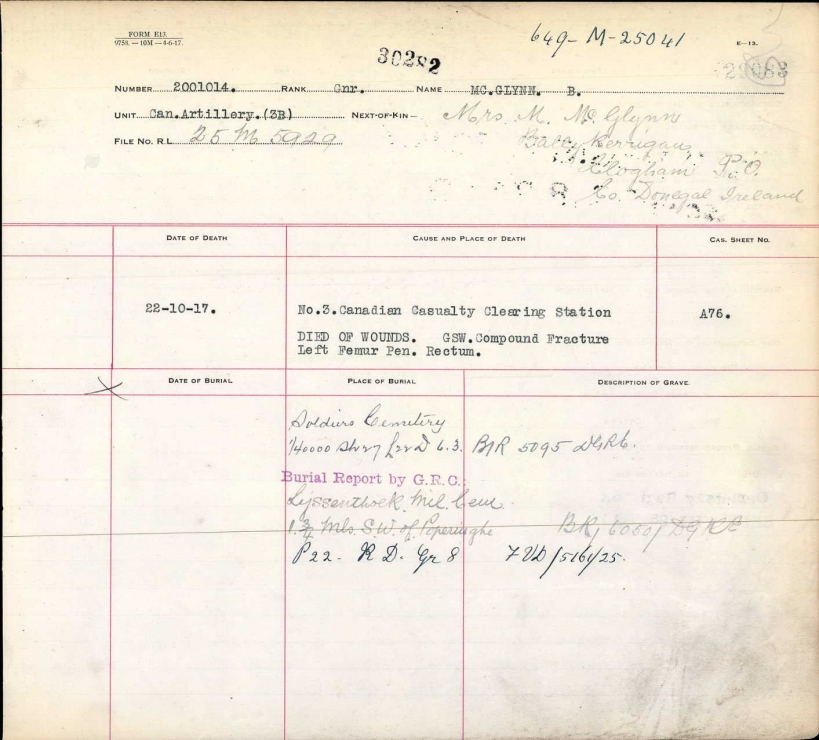 FORM E13.
9758.—10M—4-6-17.
649-M-25041
E—13.
30282
NUMBER 2001014. RANK Gnr. NAME MC.GLYNN. B.
UNIT Can.Artillery.(3B) NEXT-OF-KIN— Mrs. M. McGlynn
FILE NO. R.L. 25 M 5929 Bally Kerrigan,
Clogham P.O.
Co. Donegal Ireland
DATE OF DEATH CAUSE AND PLACE OF DEATH CAS. SHEET NO.
22-10-17. No.3.Canadian Casualty Clearing Station A76.
DIED OF WOUNDS. GSW.Compound Fracture
Left Femur Pen. Rectum.
DATE OF BURIAL PLACE OF BURIAL DESCRIPTION OF GRAVE.
Soldiers Cemetery
1/40000 Sh 27 L 22 D 6.3. B/R 5095 DGR&E.
Burial Report by G.R.C.
Lijssenthoek Mil. Cem.
1 3/4 Mls. S.W. of Poperinghe BR/6050/DGRE
P 22. R D. Gr 8 7 VD/5161/25.